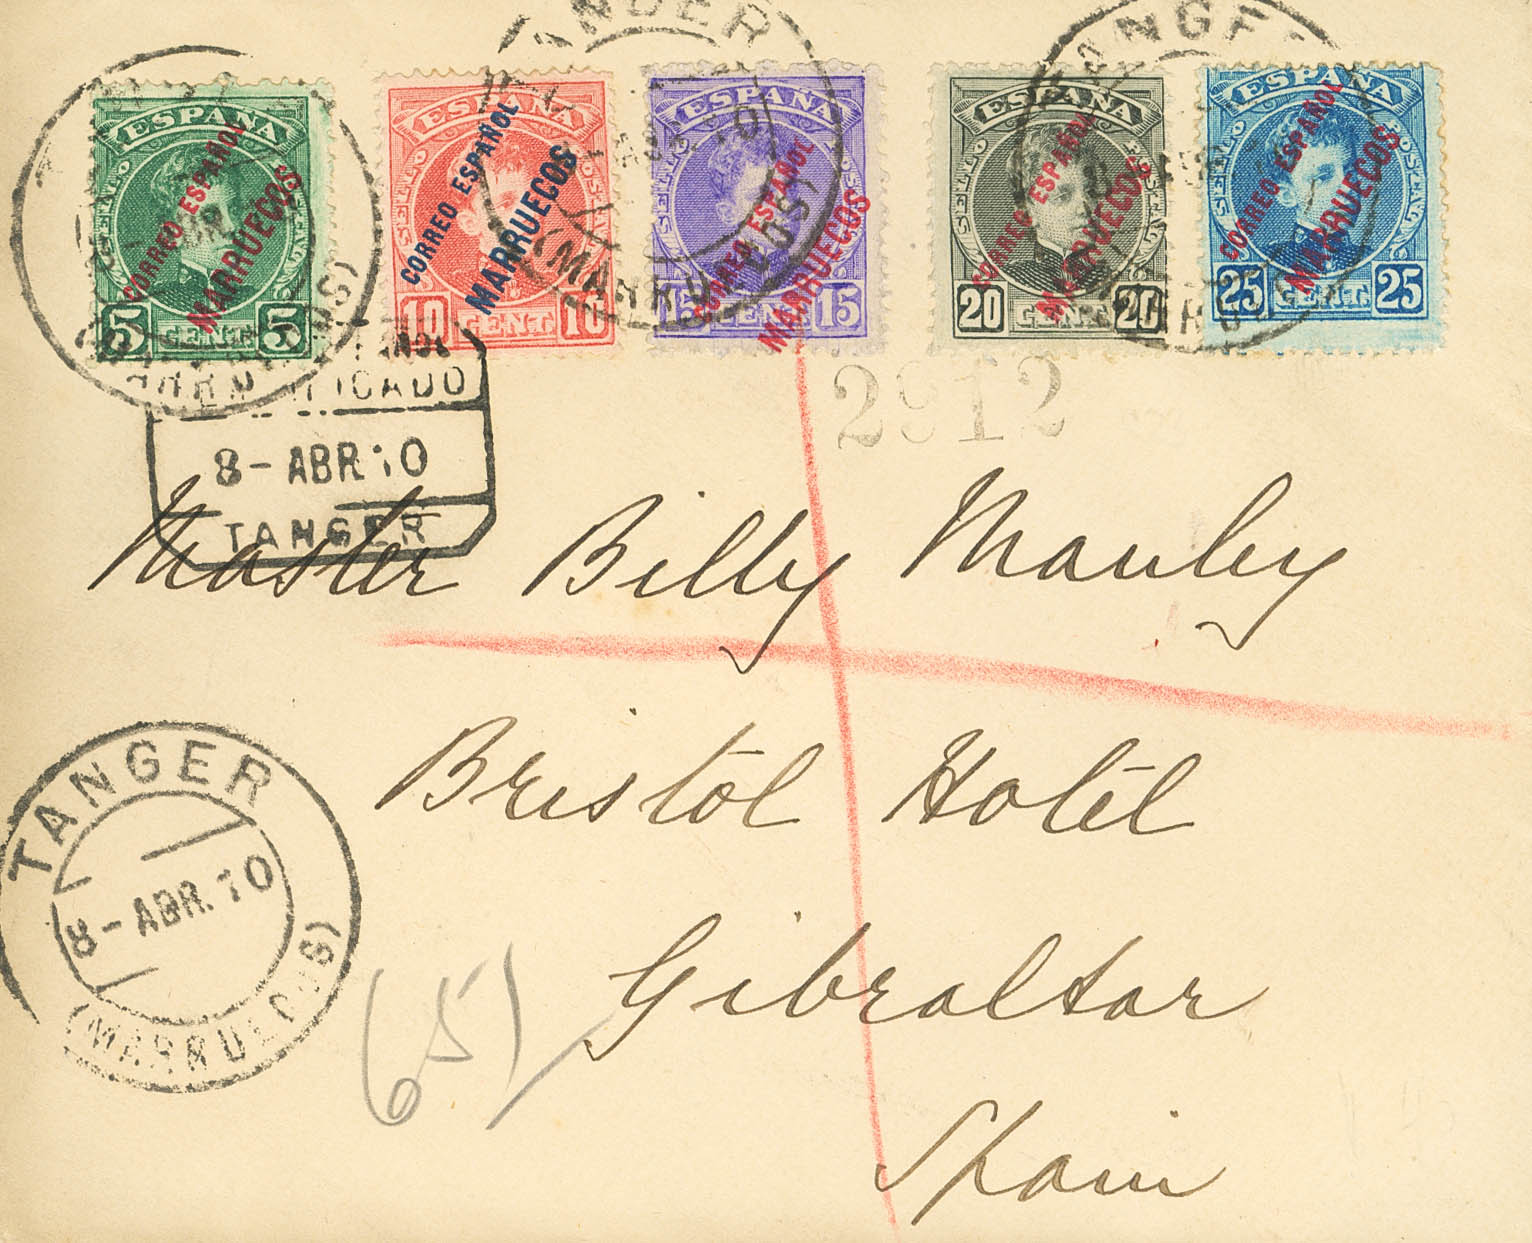 TANGER
ANGER
ESPAÑA
CORREO ESPAÑOL
MARRUECOS
SELLO
5 CENT. 5
ESPAÑA
CORREO ESPAÑOL
MARRUECOS
10 CENT. 10
ESPAÑA
CORREO ESPAÑOL
MARRUECOS
15 CENT. 15
ESPAÑA
SELLO
CORREO ESPAÑOL
MARRUECOS
20 CENT. 20
ESPAÑA
CORREO ESPAÑOL
MARRUECOS
25 CENT. 25
(MARRUECOS)
2912
8-ABR.10
TANGER
Master Billy Manley
Bristol Hotel
Gibraltar
Spain
TANGER
8-ABR.10
(MARRUECOS)